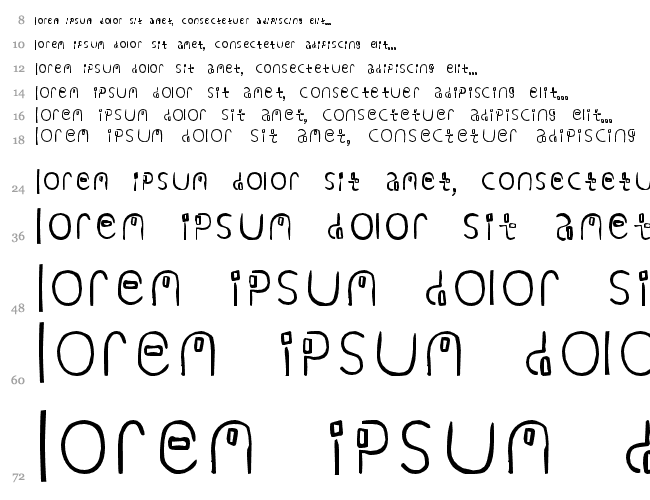 8 lorem ipsum dolor sit amet, consectetuer adipiscing elit...
10 lorem ipsum dolor sit amet, consectetuer adipiscing elit...
12 lorem ipsum dolor sit amet, consectetuer adipiscing elit...
14 lorem ipsum dolor sit amet, consectetuer adipiscing elit...
16 lorem ipsum dolor sit amet, consectetuer adipiscing elit...
18 lorem ipsum dolor sit amet, consectetuer adipiscing
24 lorem ipsum dolor sit amet, consectetu
36 lorem ipsum dolor sit amet
48 lorem ipsum dolor si
60 lorem ipsum dolo
72 lorem ipsum d